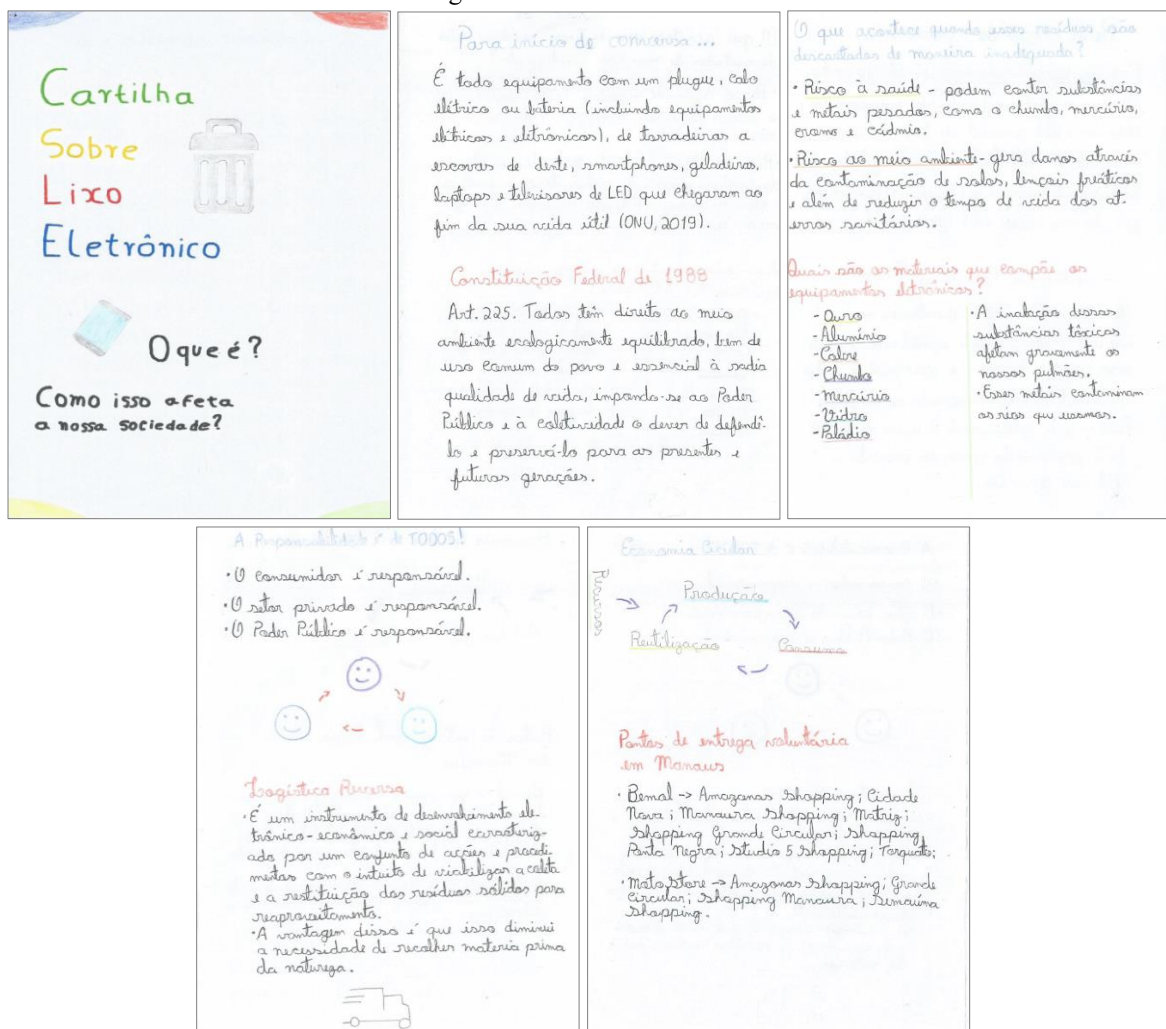 Cartilha
Sobre
Lixo
Eletrônico
O que é?
Como isso afeta
a nossa sociedade?
Para início de conversa...
É todo equipamento com um plugue, cabo
elétrico ou bateria (incluindo equipamentos
elétricos e eletrônicos), de torradeiras a
escovas de dente, smartphones, geladeiras,
laptops e televisores de LED que chegaram ao
fim da sua vida útil (ONU, 2019).
Constituição Federal de 1988
Art. 225. Todos têm direito ao meio
ambiente ecologicamente equilibrado, bem de
uso comum do povo e essencial à sadia
qualidade de vida, impondo-se ao Poder
Público e à coletividade o dever de defendê-
lo e preservá-lo para as presentes e
futuras gerações.
O que acontece quando esses resíduos são
descartados de maneira inadequada?
• Risco à saúde - podem conter substâncias
e metais pesados, como o chumbo, mercúrio,
cromo e cádmio.
• Risco ao meio ambiente - gera danos através
da contaminação de solos, lençois freáticos
e além de reduzir o tempo de vida dos at-
erros sanitários.
Quais são os materiais que compõe os
equipamentos eletrônicos?
- Ouro
- Alumínio
- Cobre
- Chumbo
- Mercúrio
- Vidro
- Paládio
• A inalação dessas
substâncias tóxicas
afetam gravemente os
nossos pulmões.
• Esses metais contaminam
os rios que usamos.
A Responsabilidade é de TODOS!
• O consumidor é responsável.
• O setor privado é responsável.
• O Poder Público é responsável.
Logística Reversa
• É um instrumento de desenvolvimento ele-
trônico-econômico e social caracteriz-
ado por um conjunto de ações e procedi-
mentos com o intuito de viabilizar a coleta
e a restituição dos resíduos sólidos para
reaproveitamento.
• A vantagem disso é que isso diminui
a necessidade de recolher materia prima
da natureza.
Economia Circular
Recursos
Produção
Reutilização
Consumo
Pontos de entrega voluntária
em Manaus
• Bemol -> Amazonas Shopping; Cidade
Nova; Manauara Shopping; Matriz;
Shopping Grande Circular; Shopping
Ponta Negra; Studio 5 Shopping; Torquato;
• Mato Store -> Amazonas Shopping; Grande
Circular; Shopping Manauara; Sumaúma
Shopping.